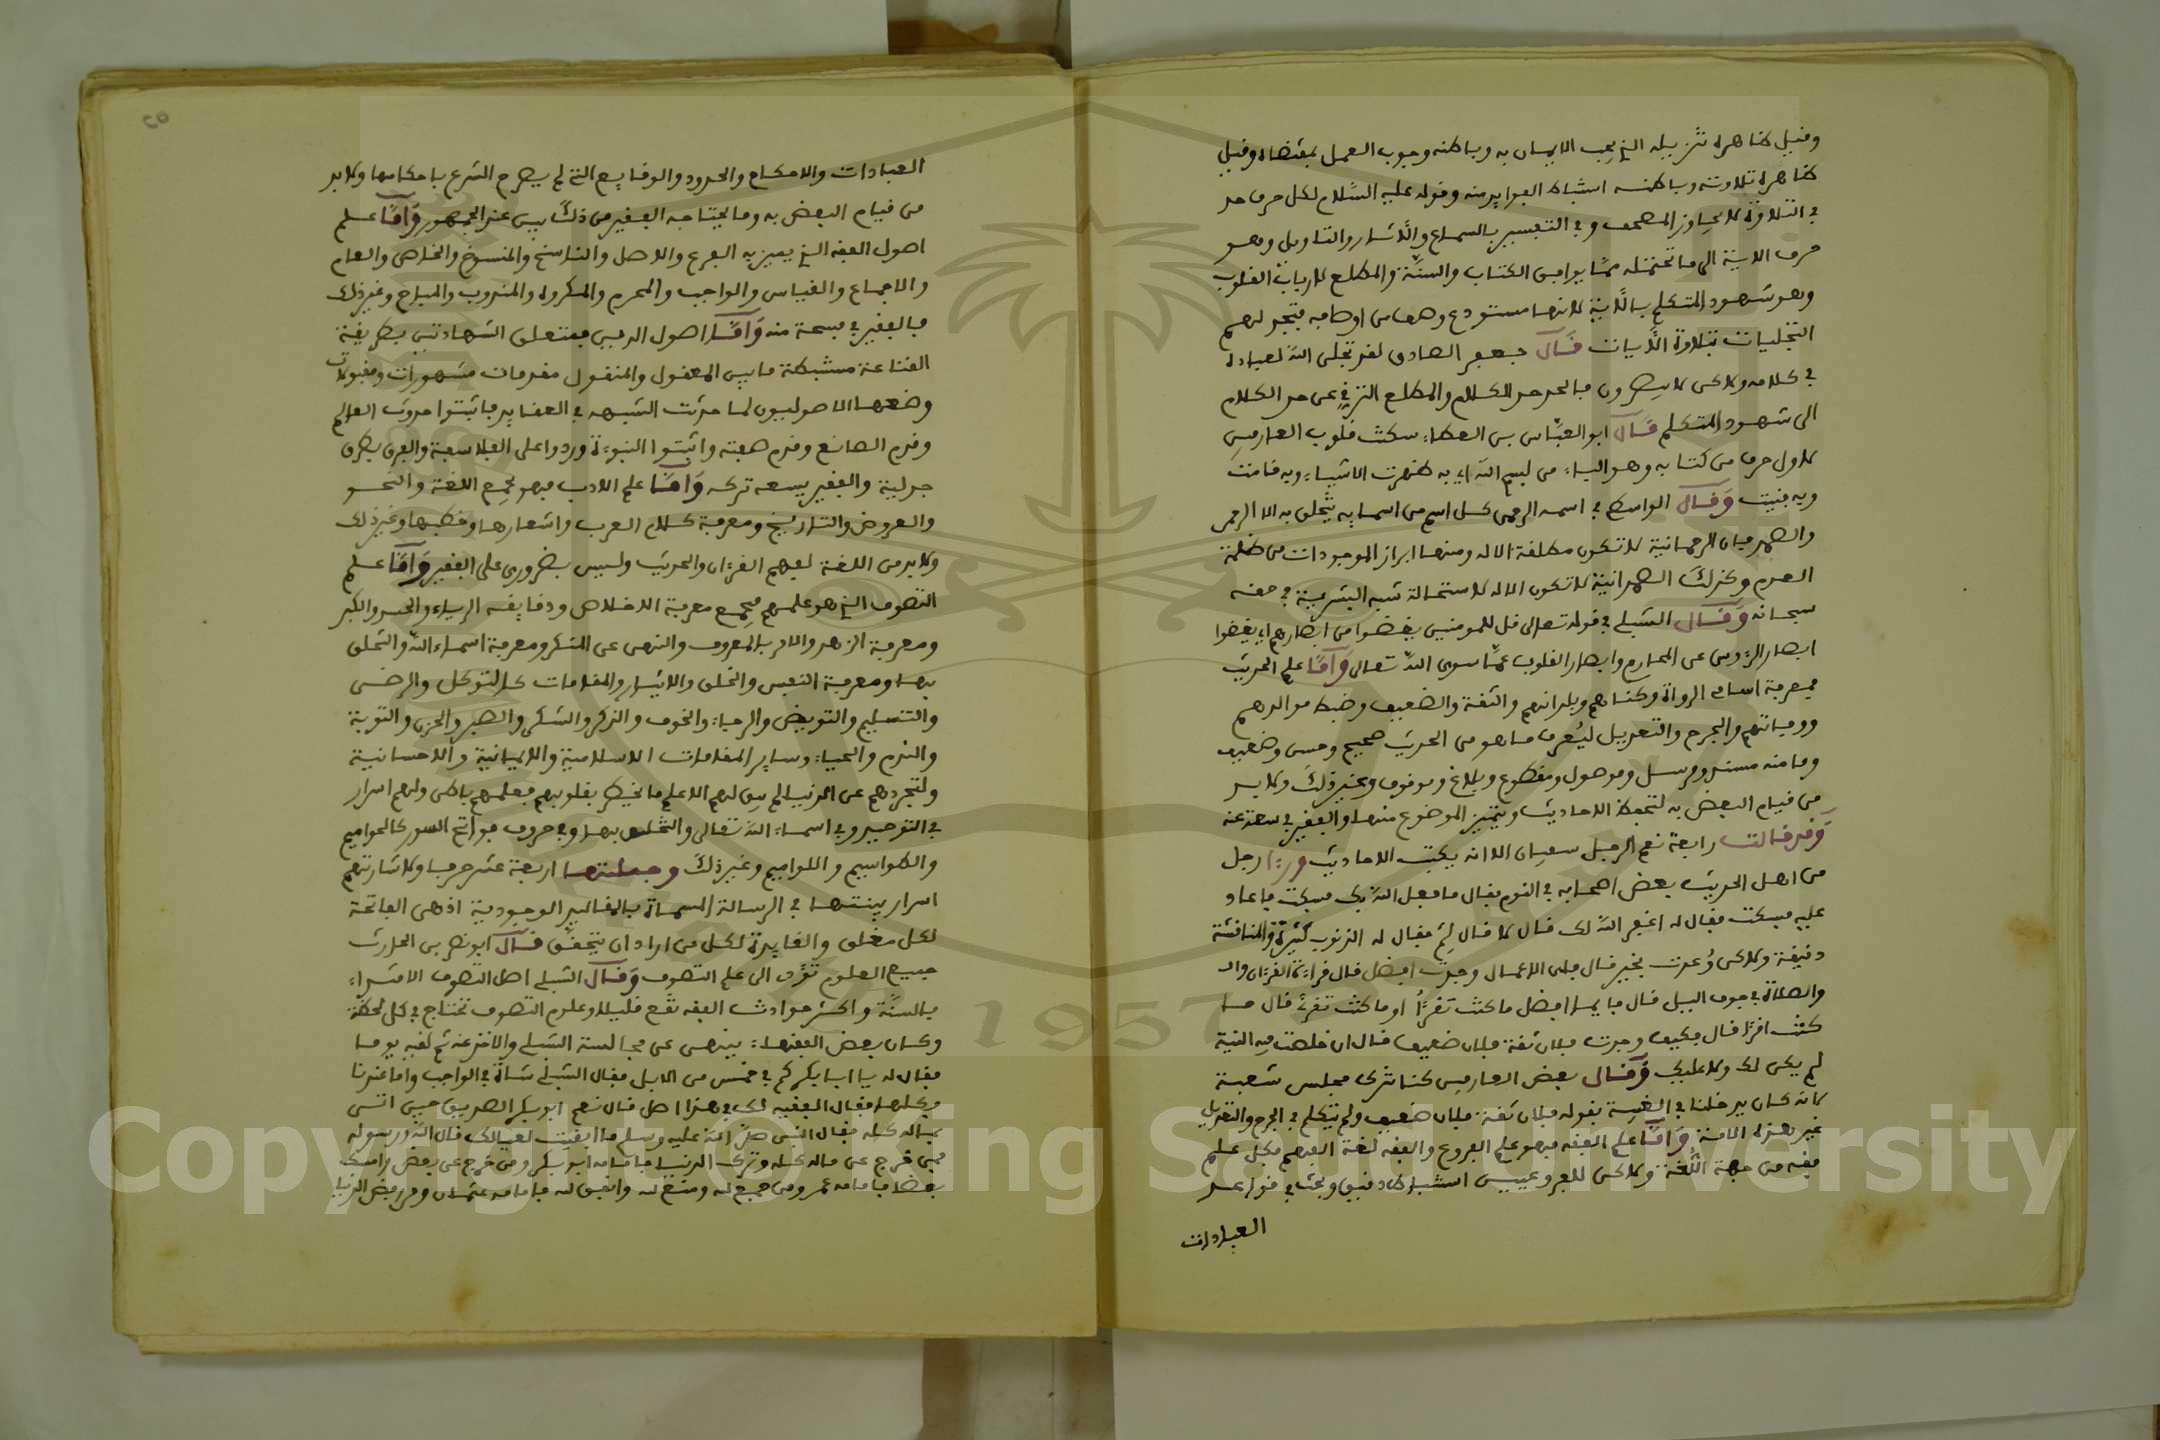 وقيل ظاهره تنزيله الذي يجب الايمان به وباطنه وجوب العمل بمقتضاه وقيل
ظاهره تلاوته وباطنه استنباط الفوايد منه وقوله عليه السلام لكل حرف حد
في التلاوة لا يجاوز المصحف وفي التفسير بالسماع والاثار والتاويل وهو
صرف الاية الى ما تحتمله مما يوافق الكتاب والسنة والمطلع لارباب القلوب
وهو شهود المتكلم بالاية لانها مستودع وصف من اوصافه فتتجدد لهم
التجليات بتلاوة الايات قال جعفر الصادق لقد تجلى الله لعباده
في كلامه ولاكن لا يبصرون فالحد حد الكلام والمطلع الترقي عن حد الكلام
الى شهود المتكلم قال ابو العباس بن العطاء سكنت قلوب العارفين
لاول حرف من كتابه وهو الباء من بسم الله اي به ظهرت الاشياء وبه قامت
وبه فنيت وقال الواسطي في اسمه الرحمن كل اسم من اسمايه يتخلق به الا الرحمن
والصمد فان الرحمانية لا تكون مطلقة الا له ومنها ابراز الموجودات من ظلمة
العدم وكذلك الصمدانية لا تكون الا له لاستحالة شبه البشرية في حقه
سبحانه وقال الشبلي في قوله تعالى قل للمومنين يغضوا من ابصارهم اي يغضوا
ابصار الرءوس عن المحارم وابصار القلوب عما سوى الله تعالى واما علم الحديث
فمعرفة اسامي الرواة وكناهم وبلدانهم والثقة والضعيف وضبط موالدهم
ووفياتهم والجرح والتعديل ليعرف ما هو من الحديث صحيح وحسن وضعيف
وما منه مسند ومرسل وموصول ومقطوع وبلاغ وموقوف وغير ذلك ولا بد
من قيام البعض به لتحفظ الاحاديث ويتميز الموضوع منها والفقير في سعة عنه
وقد قالت رابعة نعم الرجل سفيان الا انه يكتب الاحاديث ورءا رجل
من اهل الحديث بعض اصحابه في النوم فقال ما فعل الله بك فسكت فاعاد
عليه فسكت فقال له اغفر الله لك قال لا قال لم فقال له الذنوب كثيرة والمناقشة
دقيقة ولاكن وعدت بخير قال فاي الاعمال وجدت افضل قال قراءة القرءان
والصلاة في جوف الليل قال فايما افضل ما كنت تقرأ او ما كنت تقرئ قال ما
كنت اقرأ قال فكيف وجدت فلان ثقة فلان ضعيف قال ان خلصت فيه النية
لم يكن لك ولا عليك وقال بعض العارفين كنا نرى مجلس شعبة
كانه كان يدخلنا في الغيبة بقوله فلان ثقة فلان ضعيف ولم يتكلم في الجرح والتعديل
غير هذه الامة واما علم الفقه فهو علم الفروع والفقه لغة الفهم فكل علم
فقه من جهة اللغة ولاكن للفروعيين استنباط دقيق وبحث في قواعد
العبادات
العبادات والاحكام والحدود والوقايع التي لم يصرح الشرع باحكامها ولا بد
من قيام البعض به وما يحتاجه الفقير من ذلك بين عند الجمهور واما علم
اصول الفقه الذي يميز به الفرع والاصل والناسخ والمنسوخ والخاص والعام
والاجماع والقياس والواجب والمحرم والمكروه والمندوب والمباح وغير ذلك
فالفقير في فسحة منه واما اصول الدين فمتعلق الشهادتين بطريقة
القناعة مشبكة ما بين المعقول والمنقول مقدمات مشهورات ومقبولات
وضعها الاصوليون لما حدثت الشبهه في العقايد فاثبتوا حدوث العالم
وقدم الصانع وقدم صفته واثبتوا النبوءة وردوا على الفلاسفة والفرق بطرق
جدلية والفقير يسعه تركه واما علم الادب فهو يجمع اللغة والنحو
والعروض والتاريخ ومعرفة كلام العرب واشعارها وخطبها وغير ذلك
ولا بد من اللغة لفهم القرءان والحديث وليس بضروري على الفقير واما علم
التصوف الذي هو علمهم فيجمع معرفة الاخلاص ودقايقه الرياء والحسد والكبر
ومعرفة الزهد والامر بالمعروف والنهي عن المنكر ومعرفة اسماء الله والتخلق
بها ومعرفة النفس والخلق والايثار والمقامات كالتوكل والرضى
والتسليم والتفويض والرجاء والخوف والذكر والشكر والصبر والحزن والتوبة
والندم والحياء وساير المقامات الاسلامية والايمانية والاحسانية
ولتجردهم عن الدنيا لم يبق لهم الا علم ما يخطر بقلوبهم فعلمهم باطن ولهم اسرار
في التوحيد وفي اسماء الله تعالى والتخلق بها وفي حروف فواتح السور كالحواميم
والطواسيم واللواميم وغير ذلك وجملتها اربعة عشر حرفا ولاشارتهم
اسرار بينتها في الرسالة المسماة بالمقاليد الوجودية اذ هي الفاتحة
لكل مغلق والفايدة لكل من اراد ان يتحقق قال ابو نصر بن الحارث
جميع العلوم تؤدي الى علم التصوف وقال الشبلي اصل التصوف الاقتداء
بالسنة واكثر حوادث الفقه تقع قليلا وعلوم التصوف تحتاج في كل لحظة
وكان بعض الفقهاء ينهى عن مجالسة الشبلي والاخذ عنه ثم لقيه يوما
فقال له يا ابا بكر كم في خمس من الابل فقال الشبلي شاة في الواجب واما عندنا
فكلها فقال الفقيه لك في هذا اصل قال نعم ابو بكر الصديق حين اتى
بماله كله فقال النبي صلى الله عليه وسلم ما ابقيت لعيالك قال الله ورسوله
فمن خرج عن ماله كله وترك الدنيا فامامه ابو بكر ومن خرج عن بعض وامسك
بعضا فامامه عمر ومن جمع لله ومنع لله وانفق لله فامامه عثمان ومن رفض الدنيا